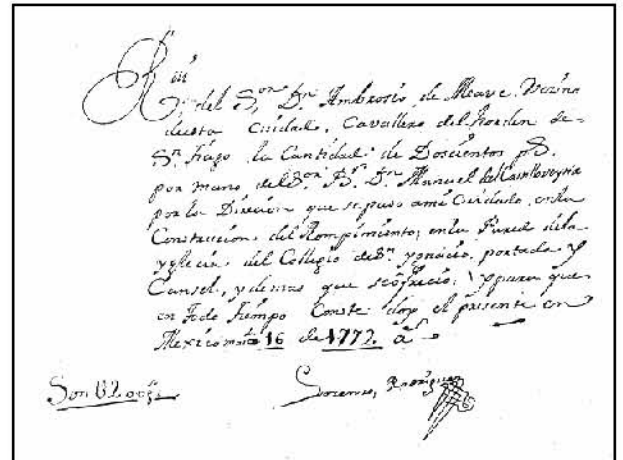 Rvi
del S.or Dn. Ambrosio de Meave Vecino
de esta Ciudad, Cavallero del horden de
Sn. tiago la Cantidad de Doscientos ps.
por mano del S.or Br. Dn. Manuel de
por la Direcion que se puso ami Cuidado, en la
Construccion, del Rompimiento, en la Pared dela
yglecia, del Collegio de Sn. ygnacio, portada, y
Cansel, y demas que se ofrecio, y para que
en todo tiempo Conste doy el presente en
Mexico 16 de 1772 a
Son U200 ps.
Lorenzo, Rodriguez